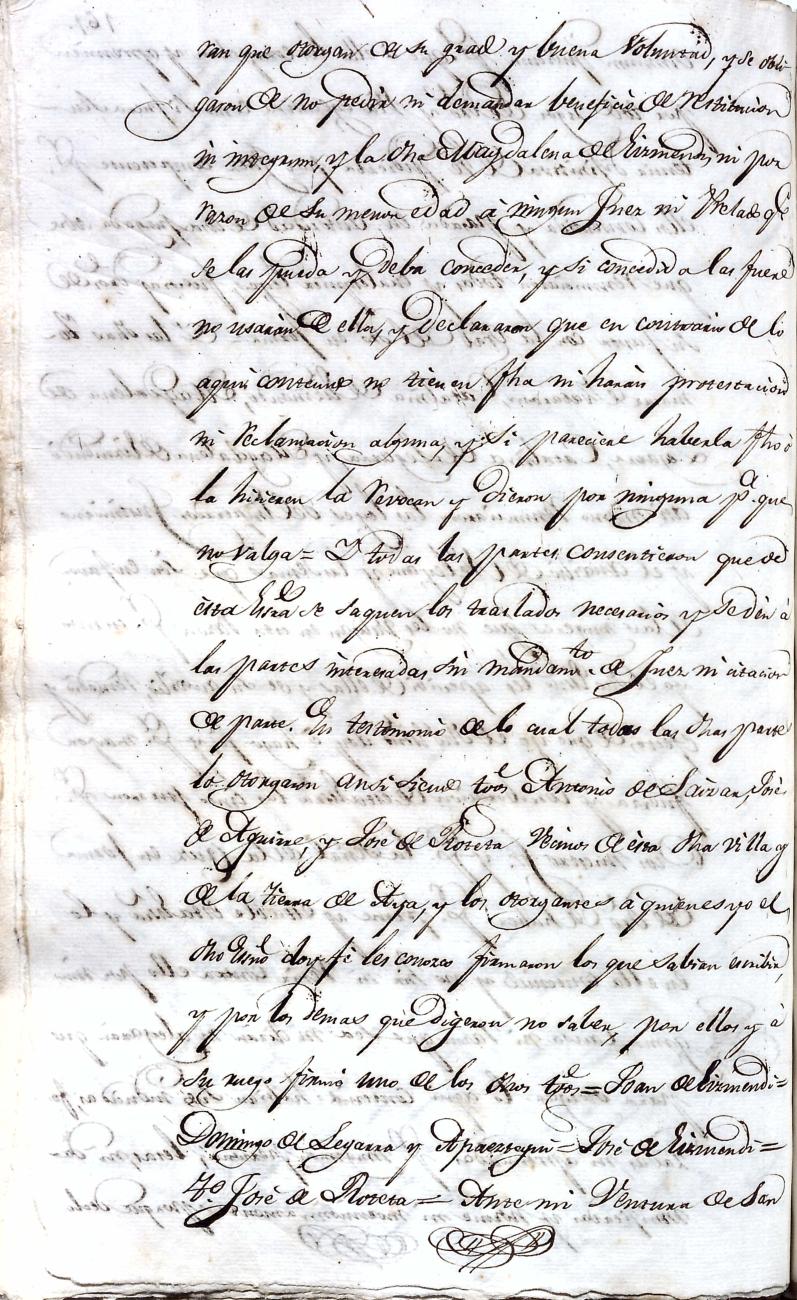 ran que otorgan de su grado y buena Voluntad, y se obli-
garon de no pedir ni demandar beneficio de restitucion
in integrum, y la dha Magdalena de Eizmendi, ni por
razon de su menor edad à ningun Juez ni Prelado qe
se las pueda y deba conceder, y si concedida las fuere
no usarán de ella, y Declararon que en contrario de lo
aqui contenido no tienen fha ni harán protestacion
ni reclamacion alguna, y si pareciere haberla fho ò
la hicieren la revocan y dieron por ninguna pa. que
no valga = Y todas las partes consentieron que de
ésta Essra se saquen los traslados necesarios y se dén à
las partes interesadas sin mandamto. de Juez ni citacion
de parte. En testimonio de lo cual todas las dhas partes
lo otorgaron ansi siendo tgos Antonio de Saizar, José
de Aguirre, y José de Roteta Vecinos de ésta dha villa y
de la tierra de Aya, y los otorgantes à quienes yo el
dho Essno doy fé les conozco firmaron los que sabian escribir,
y por los demas que digeron no saber, por ellos y à
su ruego firmó uno de los dhos tgos = Juan de Eizmendi =
Domingo de Segarra y Apaeztegui = José de Eizmendi =
tgo José de Roteta = Ante mi Ventura de San